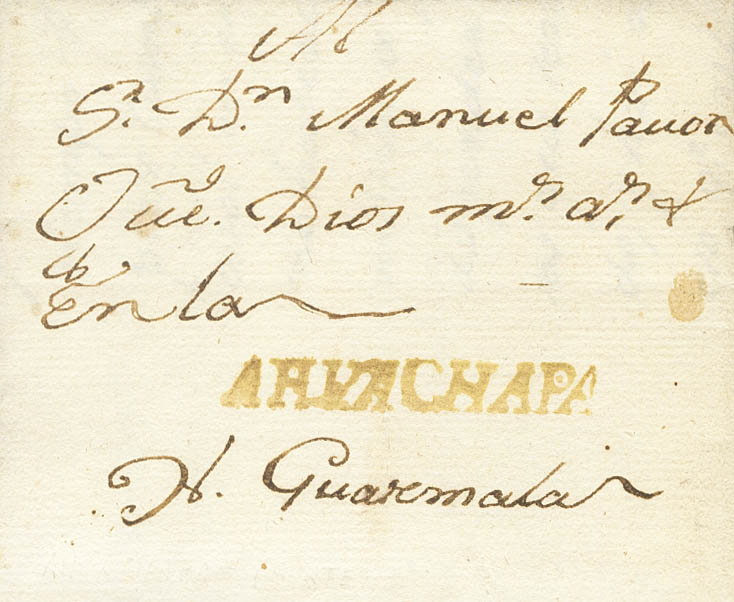 Al
Sr. Dn. Manuel Pauon
Gue. Dios ms. as. &
En la
AHVACHAPA
N. Guatemala